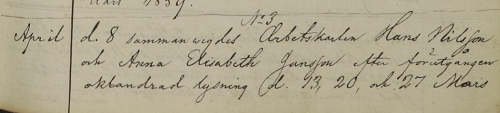 Mars 1859.
No 3
April d. 8 sammanwigdes Arbetskarlen Hans Nilsson
och Anna Elisabeth Jansson efter förutgången
oklandrad lysning d. 13, 20, och 27 Mars